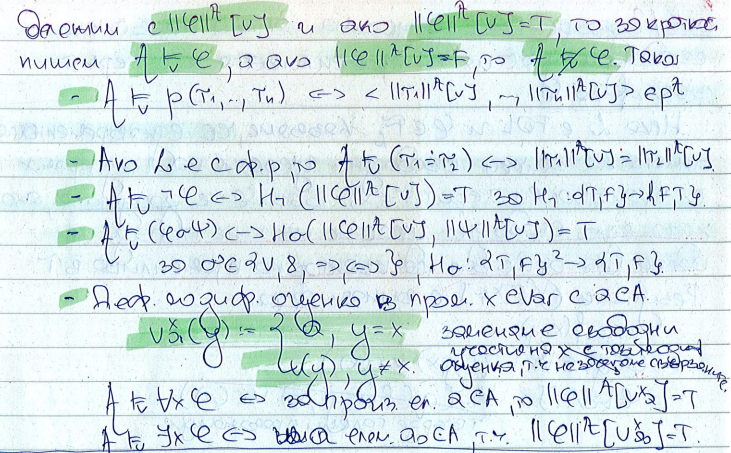 бележим с ||φ||^A[v] и ако ||φ||^A[v]=T, то за кратко
пишем A ⊨_v φ, а ако ||φ||^A[v]=F, то A ⊭_v φ. Така:
- A ⊨_v p(τ1,..,τn) <-> < ||τ1||^A[v], .., ||τn||^A[v] > ∈ p^A
- Ако L е с ф.р, то A ⊨_v (τ1≐τ2) <-> ||τ1||^A[v] = ||τ2||^A[v].
- A ⊨_v ¬φ <-> H¬(||φ||^A[v])=T за H¬:{T,F}->{F,T}.
- A ⊨_v (φσψ) <-> Hσ(||φ||^A[v], ||ψ||^A[v])=T
за σ∈{∨,&,=>,<=>}, Hσ:{T,F}²->{T,F}.
- Деф. модиф. оценка в пром. x∈Var с a∈A.
v^x_a(y) := { a, y=x заменяме свободни
v(y), y≠x. участия на x с
оценка, т.к. не
A ⊨_v ∀xφ <=> за произ. ел. a∈A, то ||φ||^A[v^x_a]=T
A ⊨_v ∃xφ <=> има елем. a0∈A, т.ч. ||φ||^A[v^x_a0]=T.